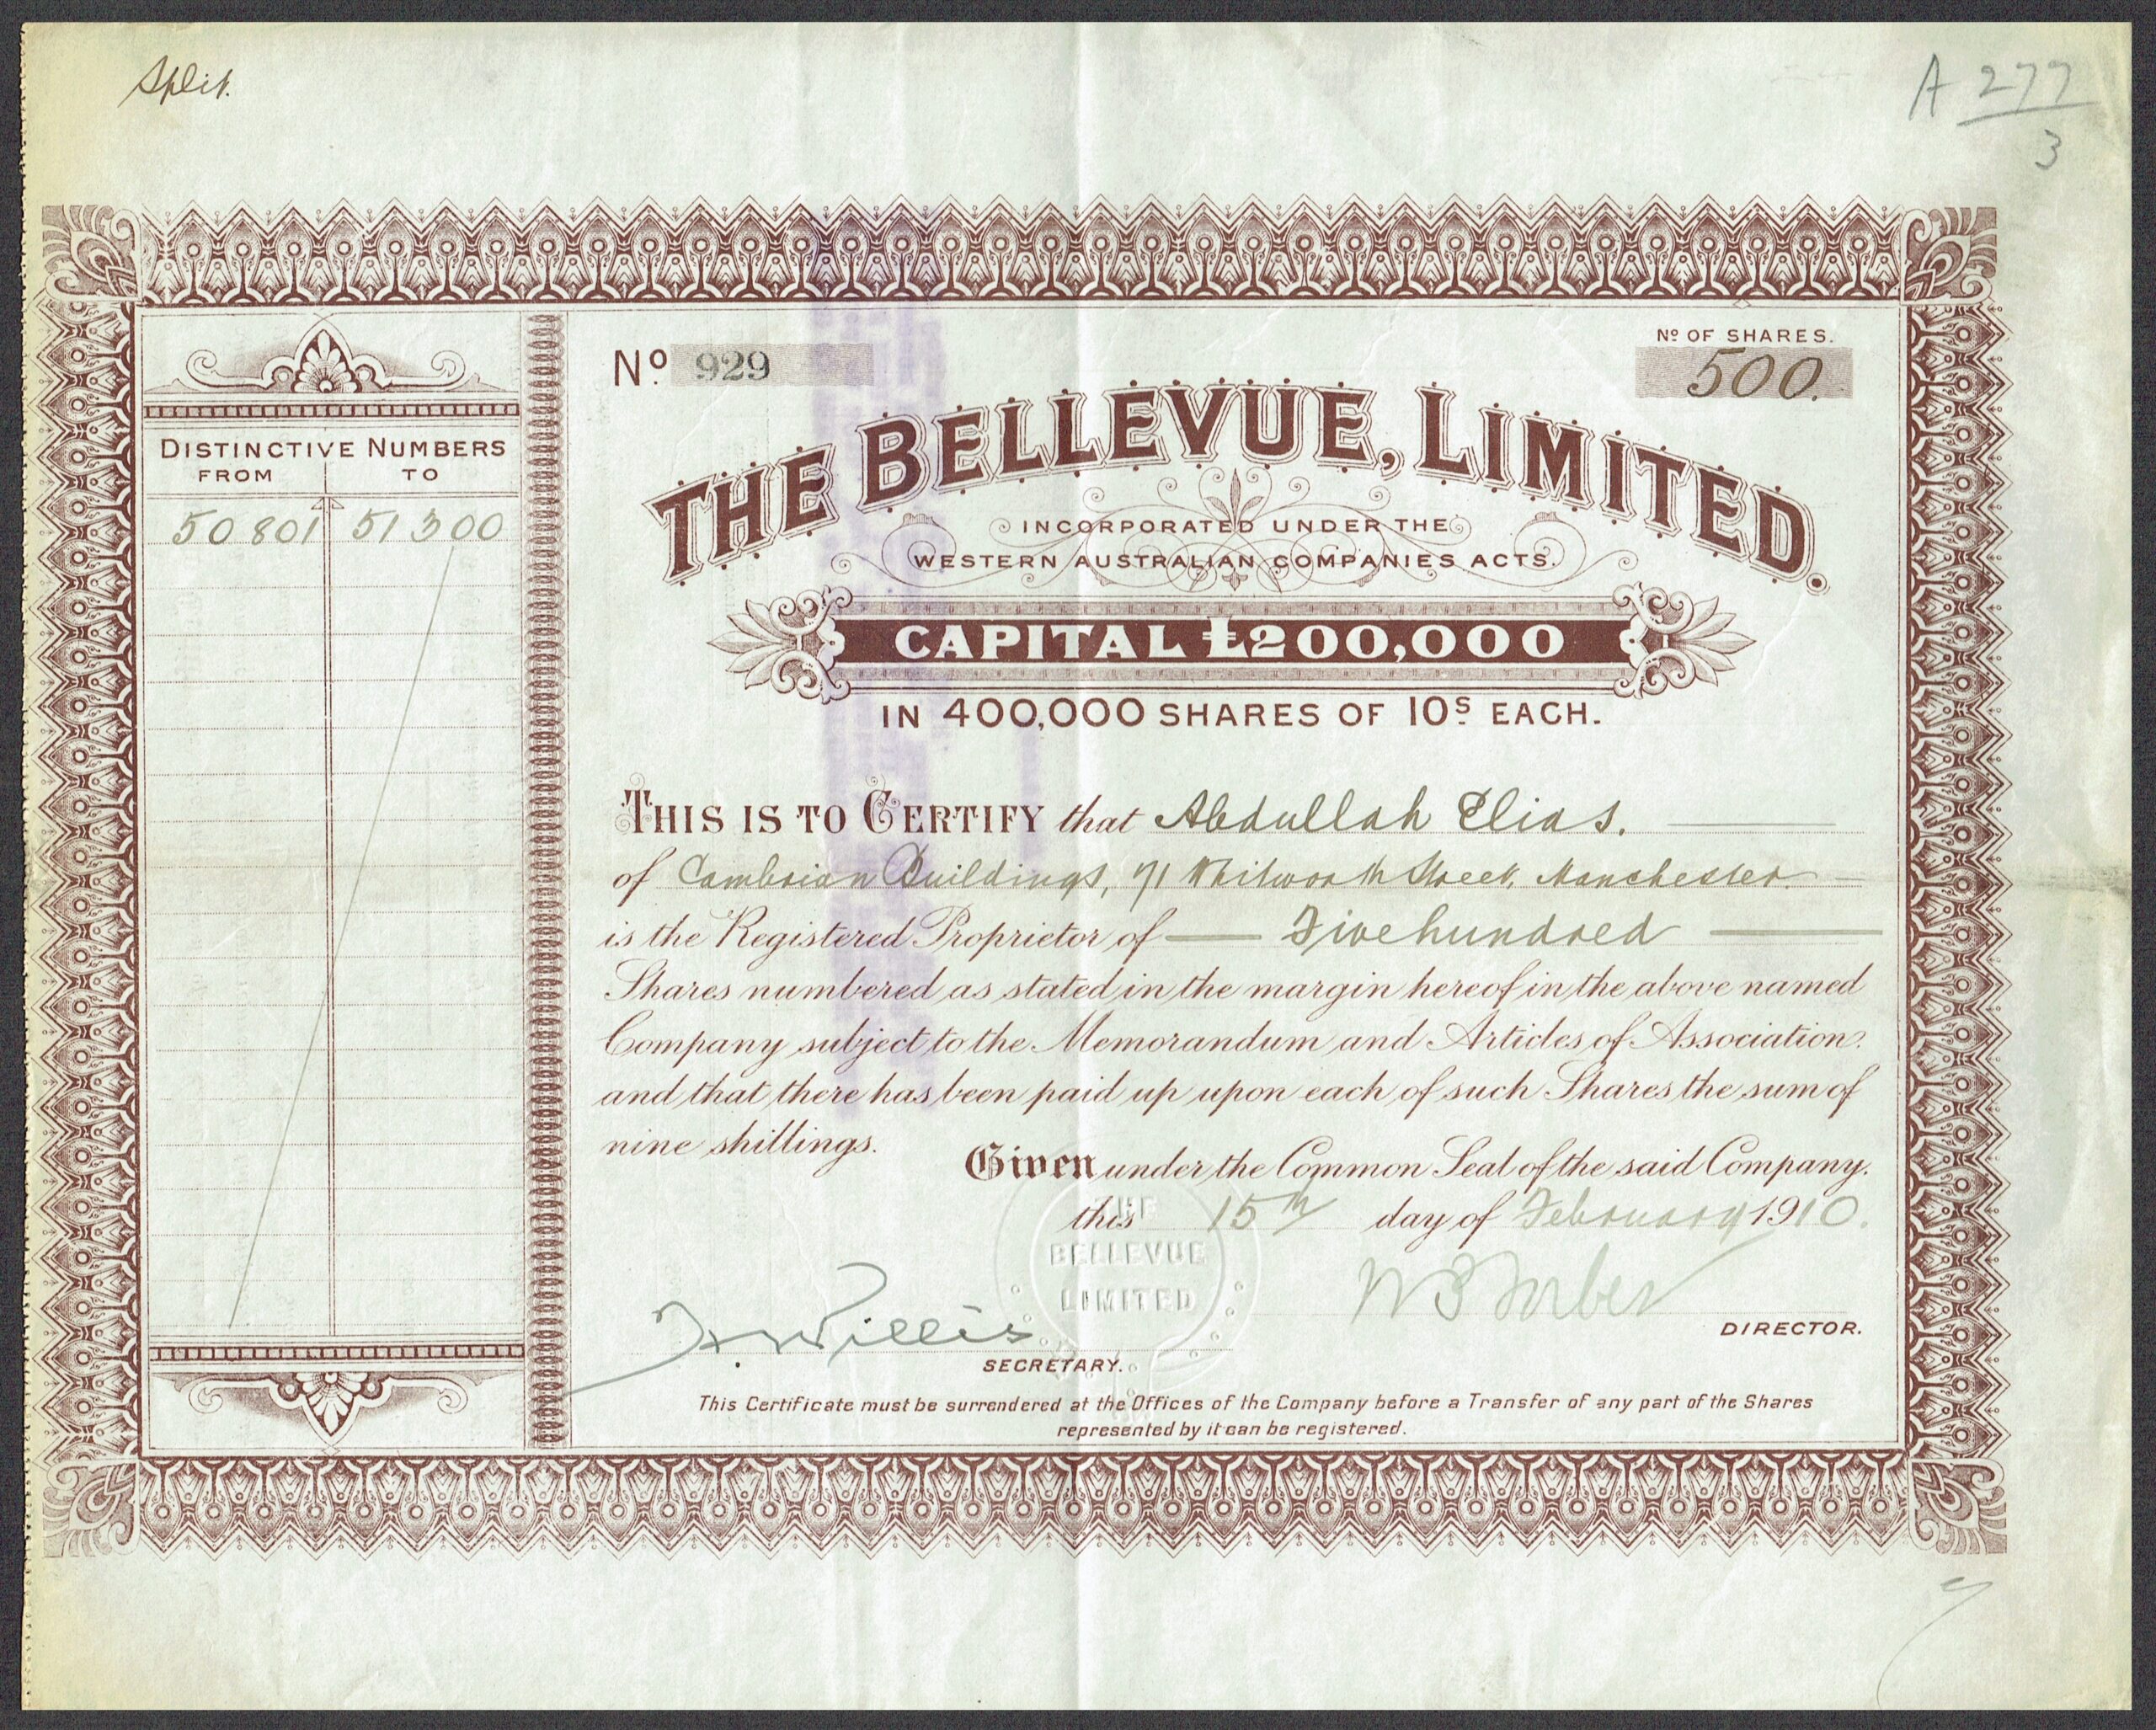 Split.
A 277
3
No. 929
No OF SHARES.
500.
DISTINCTIVE NUMBERS
FROM TO
50801 51300
THE BELLEVUE, LIMITED.
INCORPORATED UNDER THE
WESTERN AUSTRALIAN COMPANIES ACTS.
CAPITAL £200,000
IN 400,000 SHARES OF 10s EACH.
THIS IS TO CERTIFY that Abdullah Elias.
of Cambrian Buildings, 71 Whitworth Street, Manchester.
is the Registered Proprietor of Five hundred
Shares numbered as stated in the margin hereof in the above named
Company subject to the Memorandum and Articles of Association.
and that there has been paid up upon each of such Shares the sum of
nine shillings.
Given under the Common Seal of the said Company.
this 15th day of February 1910.
THE
BELLEVUE
LIMITED
Willis
SECRETARY.
DIRECTOR.
This Certificate must be surrendered at the Offices of the Company before a Transfer of any part of the Shares
represented by it can be registered.